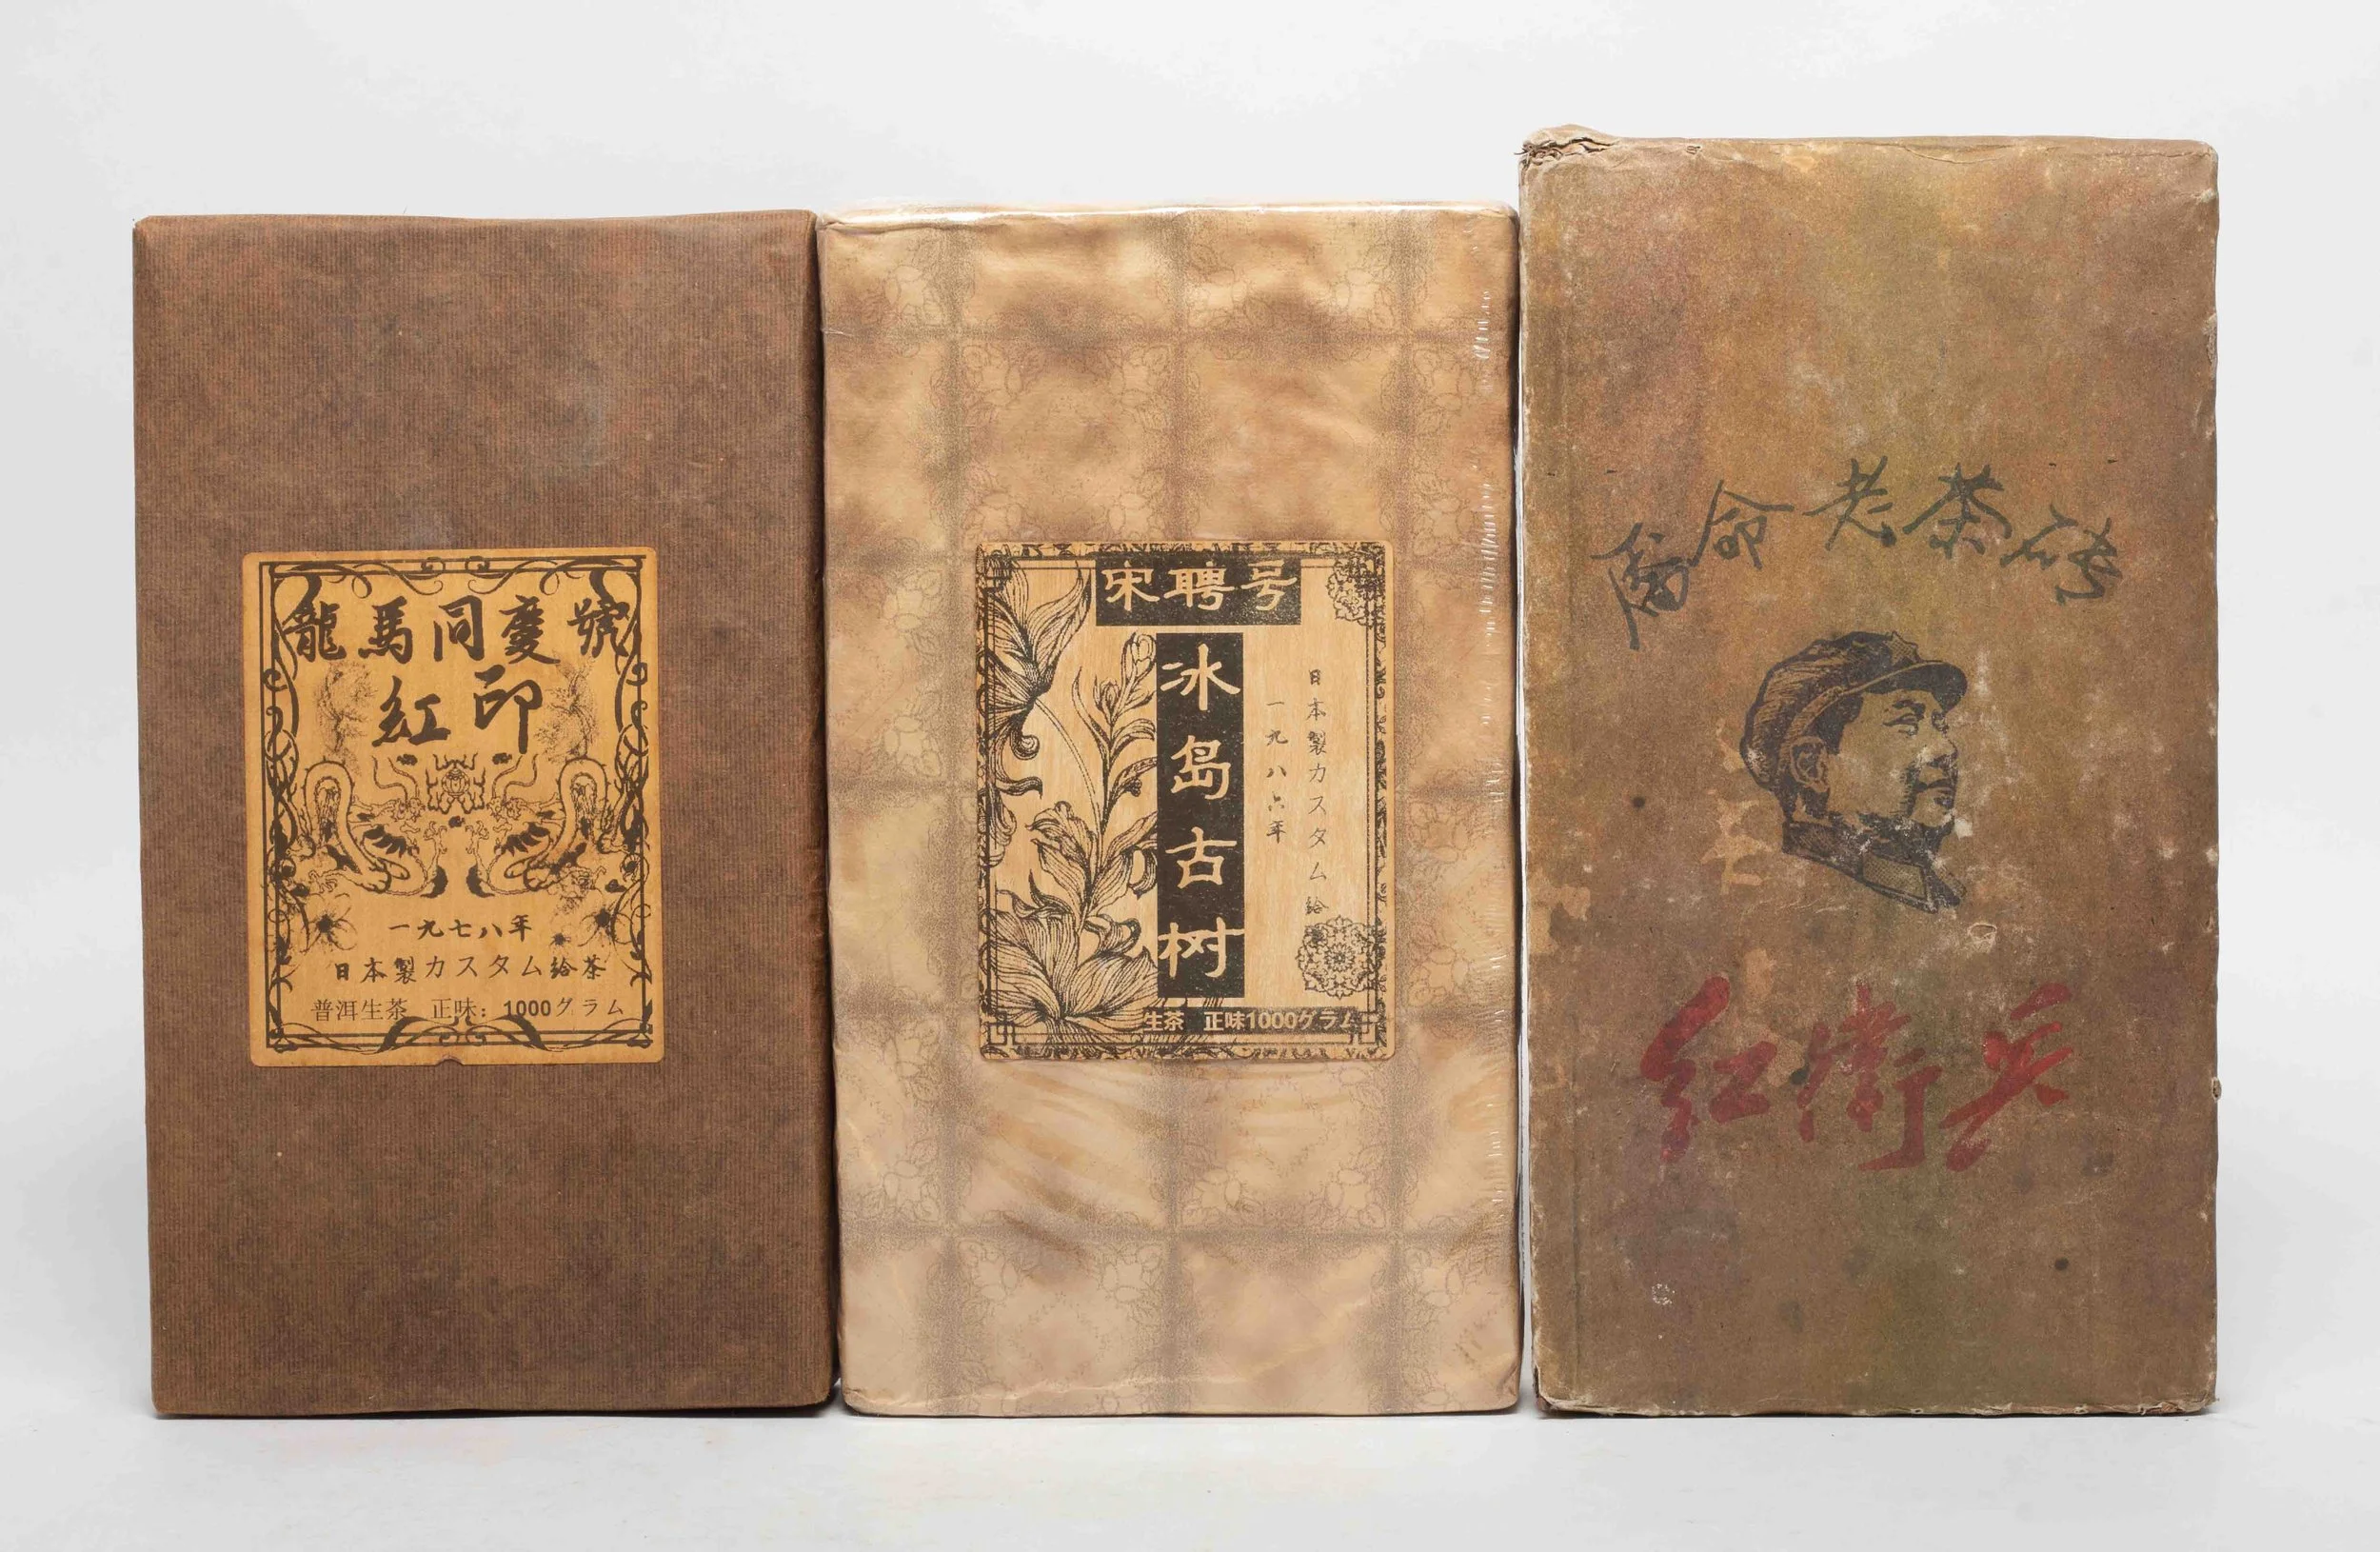 龍馬同慶號
紅印
一九七八年
日本製カスタム給茶
普洱生茶 正味：1000グラム
宋聘号
冰岛古树
日本製カスタム給
一九八六年
生茶 正味1000グラム
革命老茶砖
红衛兵